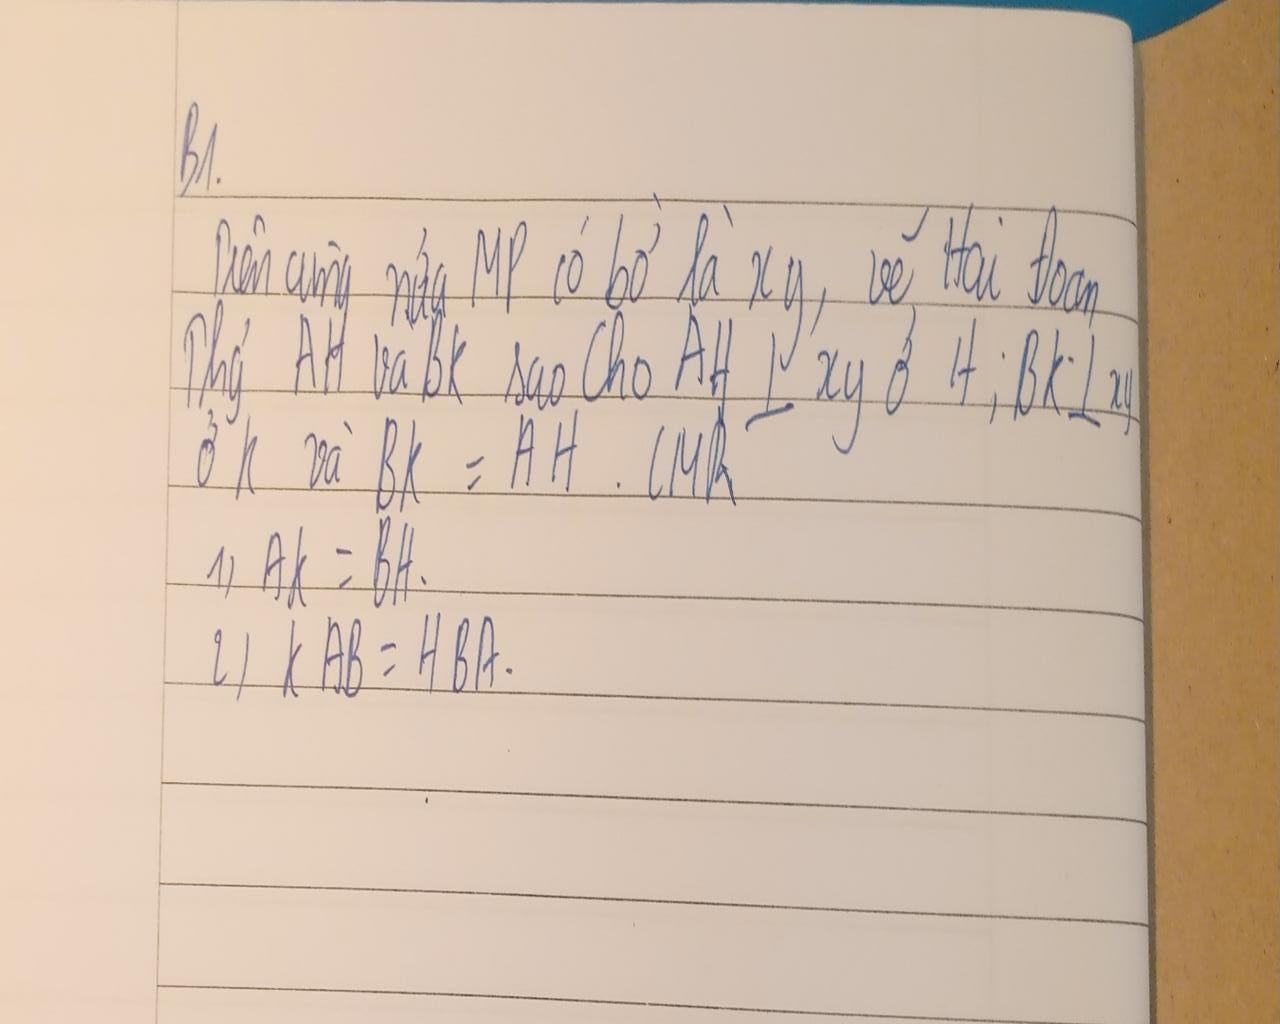 B1.
Trên cùng nửa MP có bờ là xy, vẽ Hai đoạn
Thẳng AH và BK sao cho AH ⊥ xy ở H ; BK ⊥ xy
ở K và BK = AH . CMR
1) AK = BH.
2) KAB = HBA.